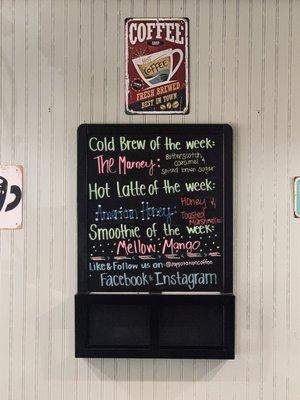 COFFEE
SHOP
HOT
COFFEE
FRESH BREWED
BEST IN TOWN
Cold Brew of the week:
The Marney: Butterscotch,
Caramel &
Spiced brown sugar
Hot latte of the week:
American Honey: Honey &
Toasted
Marshmallow
Smoothie of the week:
Mellow Mango
Like & Follow us on
Facebook & Instagram